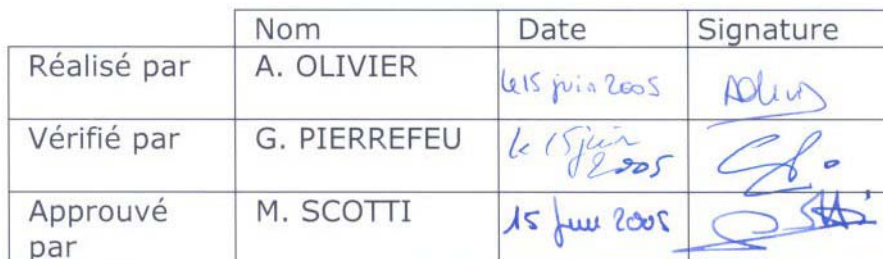 Nom Date Signature
Réalisé par A. OLIVIER le 15 juin 2005
Vérifié par G. PIERREFEU le 15 juin
2005
Approuvé M. SCOTTI 15 Juin 2005
par